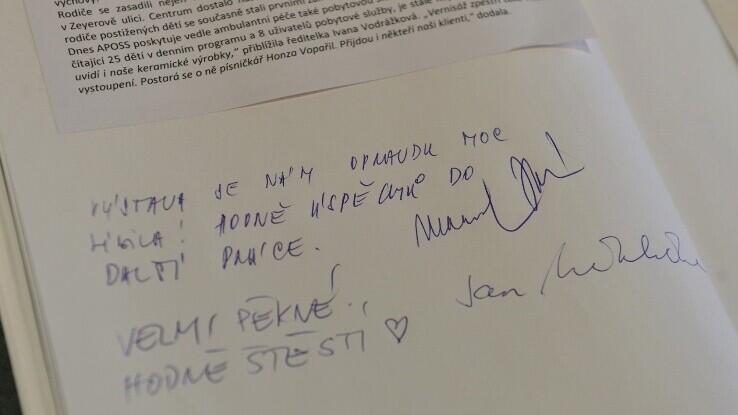 výchovy,
Rodiče se zasadili nejen
v Zeyerově ulici. Centrum dostalo
rodiče postižených dětí se současně stali prvními
Dnes APOSS poskytuje vedle ambulantní péče také pobytovou
čítající 25 dětí v denním programu a 8 uživatelů pobytové služby, je stále
uvidí i naše keramické výrobky,“ přiblížila ředitelka Ivana Vodrážková. „Vernisáž zpestří
vystoupení. Postará se o ně písničkář Honza Vopařil. Přijdou i někteří naši klienti,“ dodala.
VÝSTAVA SE NÁM OPRAVDU MOC
LÍBILA! HODNĚ ÚSPĚCHŮ DO
DALŠÍ PRÁCE.
Jan
VELMI PĚKNÉ!
HODNĚ ŠTĚSTÍ ♡